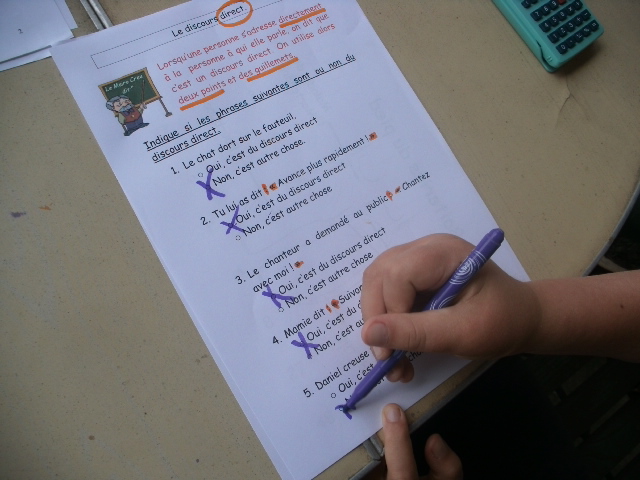 Le discours direct
Lorsqu'une personne s'adresse directement
à la personne à qui elle parle, on dit que
c'est un discours direct. On utilise alors
deux points et des guillemets.
Indique si les phrases suivantes sont ou non du
discours direct.
1. Le chat dort sur le fauteuil.
Oui, c'est du discours direct
Non, c'est autre chose.
2. Tu lui as dit : « Avance plus rapidement ! »
Oui, c'est du discours direct
Non, c'est autre chose
3. Le chanteur a demandé au public : « Chantez
avec moi ! »
Oui, c'est du discours direct
Non, c'est autre chose
4. Mamie dit : «
Oui, c'est du
Non, c'est
5. Daniel creuse
Oui, c'est